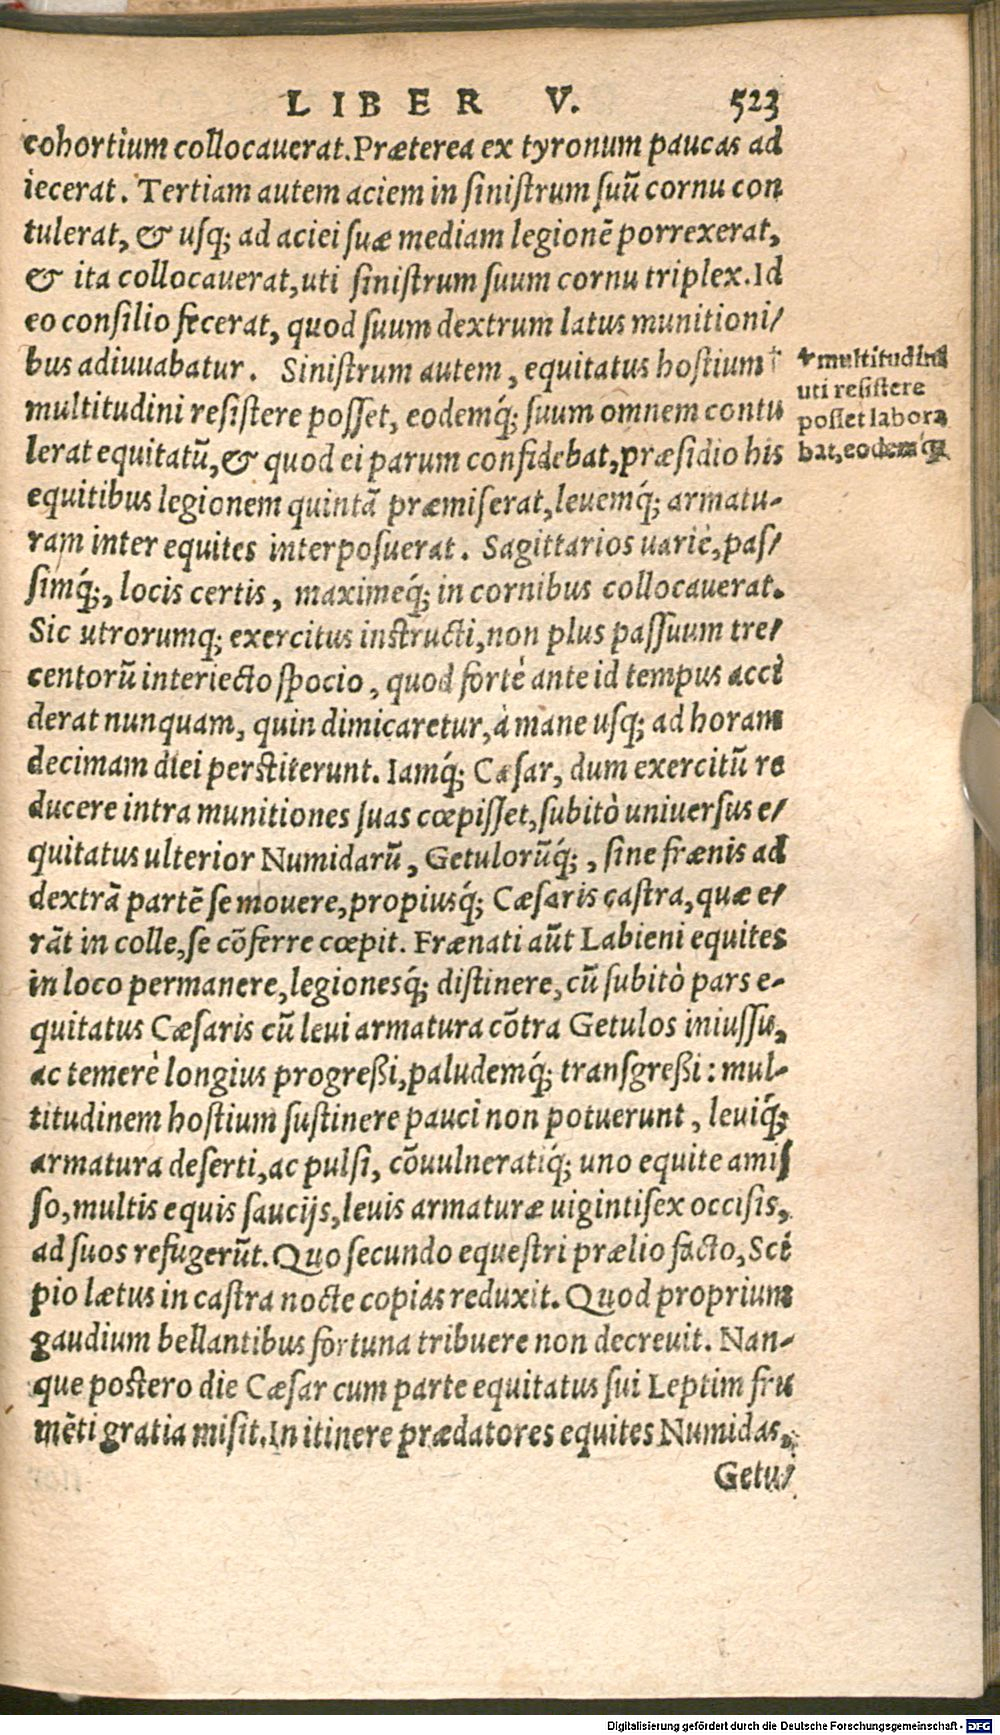 LIBER V. 523
cohortium collocauerat. Præterea ex tyronum paucas ad
iecerat. Tertiam autem aciem in sinistrum suũ cornu con
tulerat, & usq; ad aciei suæ mediam legionẽ porrexerat,
& ita collocauerat, uti sinistrum suum cornu triplex. Id
eo consilio fecerat, quod suum dextrum latus munitioni/
bus adiuuabatur. Sinistrum autem, equitatus hostium †
multitudini resistere posset, eodemq́; suum omnem contu
lerat equitatũ, & quod ei parum confidebat, præsidio his
equitibus legionem quintã præmiserat, leuemq́; armatu-
ram inter equites interposuerat. Sagittarios uariè, pas/
simq́;, locis certis, maximeq́; in cornibus collocauerat.
Sic utrorumq; exercitus instructi, non plus passuum tre/
centorũ interiecto spocio, quod fortè ante id tempus acci
derat nunquam, quin dimicaretur, à mane usq; ad horam
decimam diei perstiterunt. Iamq́; Cæsar, dum exercitũ re
ducere intra munitiones suas cœpisset, subitò uniuersus e/
quitatus ulterior Numidarũ, Getulorũq́;, sine frænis ad
dextrã partẽ se mouere, propiusq́; Cæsaris castra, quæ e/
rãt in colle, se cõferre cœpit. Frænati aũt Labieni equites
in loco permanere, legionesq́; distinere, cũ subitò pars e-
quitatus Cæsaris cũ leui armatura cõtra Getulos iniussu,
ac temerè longius progreßi, paludemq́; transgreßi: mul-
titudinem hostium sustinere pauci non potuerunt, leuiq́;
armatura deserti, ac pulsi, cõuulneratiq́; uno equite amis
so, multis equis saucijs, leuis armaturæ uigintisex occisis,
ad suos refugerũt. Quo secundo equestri prælio facto, Sci
pio lætus in castra nocte copias reduxit. Quod proprium
gaudium bellantibus fortuna tribuere non decreuit. Nan-
que postero die Cæsar cum parte equitatus sui Leptim fru
mẽti gratia misit. In itinere prædatores equites Numidas,
Getu/
✝multitudini
uti resistere
posset labora
bat, eodemq́;
Digitalisierung gefördert durch die Deutsche Forschungsgemeinschaft - DFG